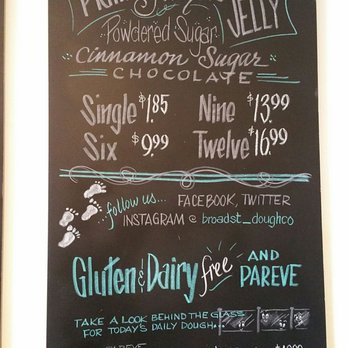 JELLY
Powdered Sugar
Cinnamon Sugar
CHOCOLATE
Single $1.85 Nine $13.99
Six $9.99 Twelve $16.99
...follow us... FACEBOOK, TWITTER
INSTAGRAM @ broadst_doughco
Gluten & Dairy free AND
PAREVE
TAKE A LOOK BEHIND THE GLASS
FOR TODAY'S DAILY DOUGH...